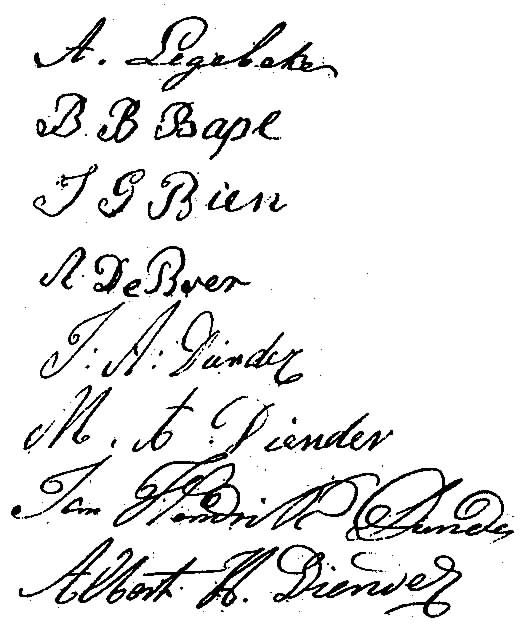 A. Legebeke
B B Bape
J G Bien
A. De Boer
J: A: Diender
M. A. Diender
Jan Hendrik
Albert H. Diender